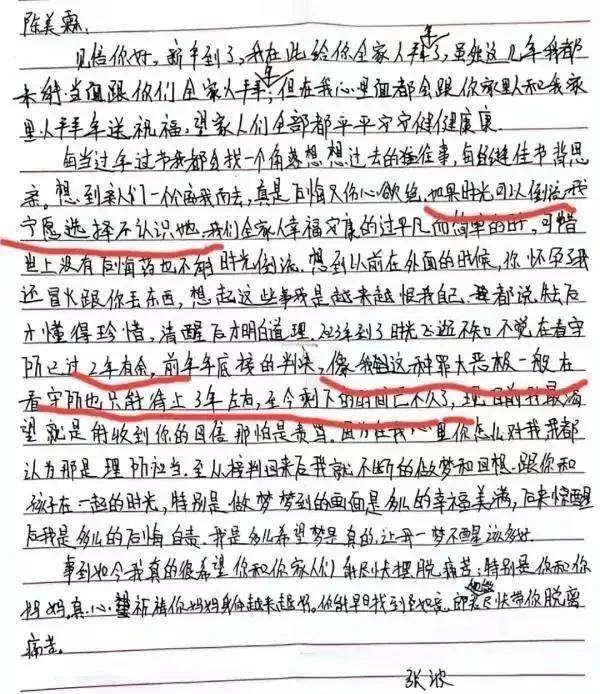 陈美霖:
见信你好,新年到了,我在此给你全家人拜年了,虽然这几年我都
未能当面跟你们全家人拜年,但在我心里面都会跟你家里人和我家
里人拜年送祝福,望家人们全部都平平安安健健康康.
每当过年过节我都会找一个角落想想过去的种往事,每逢佳节倍思
亲。想到亲人们一个个离我而去,真是后悔又伤心欲绝,如果时光可以倒流我
宁愿选择不认识她,我们全家人幸福安康的过平凡而简单的时,可惜
世上没有后悔药也不能时光倒流.想到以前在外面的时候,你怀孕了我
还冒火跟你丢东西,想起这些事我是越来越恨我自己.我都说失去后
才懂得珍惜,清醒后才明白道理.2023年到了时光飞逝不知不觉在看守
所已过2年有余,前年年底接的判决,像我这种罪大恶极一般在
看守所也只能待上3年左右,至今剩下的时间已不久了,现目前我最渴
望就是能收到你的回信那怕是责骂.因为在我心里你怎么对我我都
认为那是理所应当.至从接判回来后我就不断的做梦和回想.跟你和
孩子在一起的时光,特别是做梦梦到的画面是多么的幸福美满,后来惊醒
后我是多么的后悔自责.我是多么希望梦是真的,让我一梦不醒该多好.
事到如今我真的很希望你和你家人们能尽快摆脱痛苦;特别是你和你
妈妈.真心祈祷你妈妈身体越来越好.你能早日找到如意郎君尽快带你脱离
痛苦。
张波